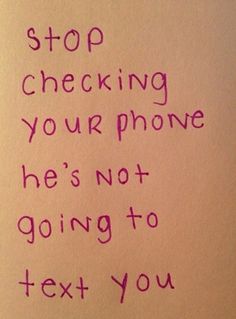 STOP
checking
YOUR phone
he's NOT
going to
text you